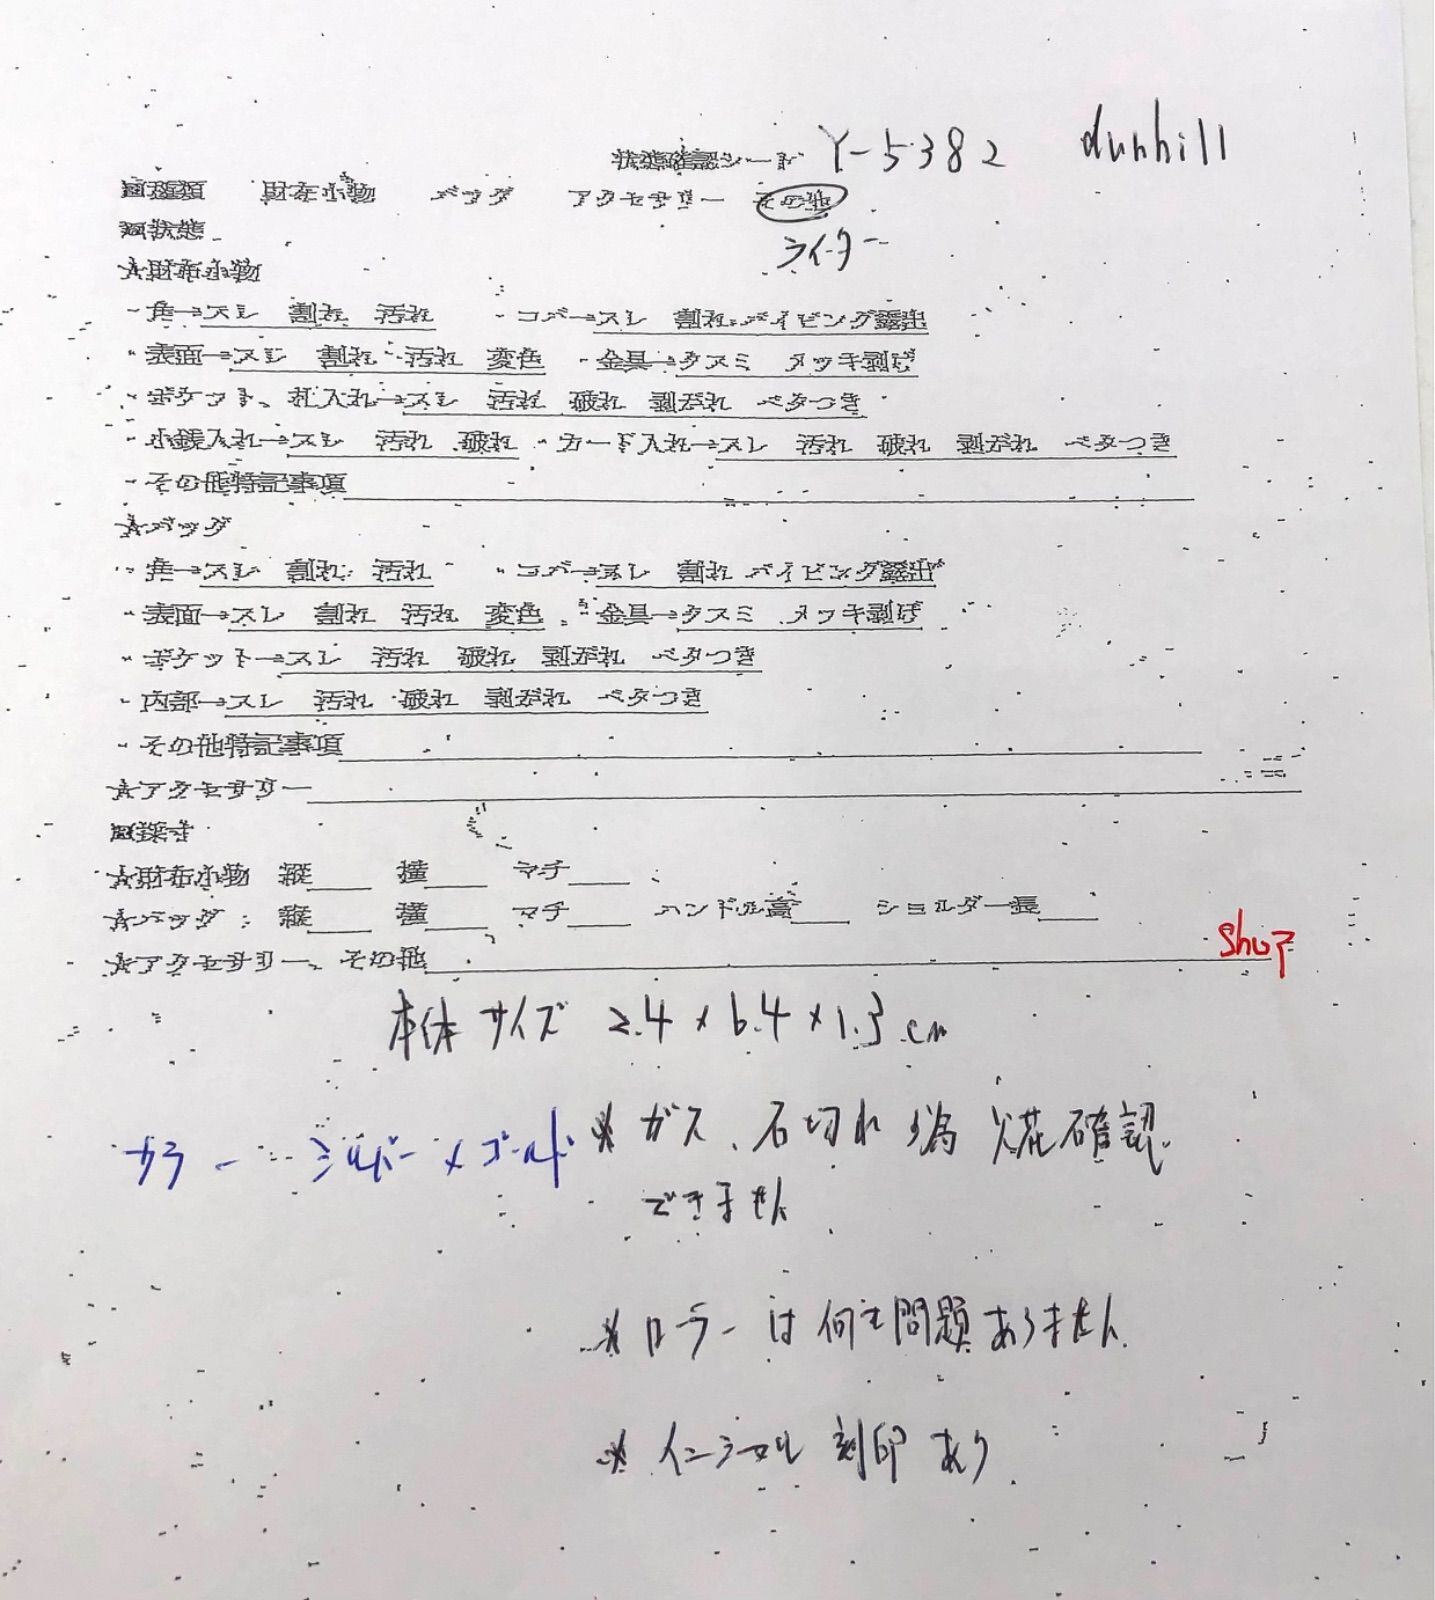 状態確認シート Y-5382 dunhill
■種類 財布小物 バッグ アクセサリー その他
ライター
■状態
★財布小物
・角→スレ 割れ 汚れ ・コバ→スレ 割れ パイピング露出
・表面→スレ 割れ 汚れ 変色 ・金具→クスミ メッキ剥げ
・ポケット、札入れ→スレ 汚れ 破れ 剥がれ ベタつき
・小銭入れ→スレ 汚れ 破れ ・カード入れ→スレ 汚れ 破れ 剥がれ ベタつき
・その他特記事項
★バッグ
・角→スレ 割れ 汚れ ・コバ→スレ 割れ パイピング露出
・表面→スレ 割れ 汚れ 変色 ・金具→クスミ メッキ剥げ
・ポケット→スレ 汚れ 破れ 剥がれ ベタつき
・内部→スレ 汚れ 破れ 剥がれ ベタつき
・その他特記事項
★アクセサリー
■採寸
★財布小物 縦 横 マチ
★バッグ 縦 横 マチ ハンドル高 ショルダー長
★アクセサリー、その他
本体サイズ 2.4×6.4×1.3cm
カラー シルバー×ゴールド ※ガス、石切れの為 火花確認
できません
※ローラーは何も問題ありません
※イニシャル 刻印あり